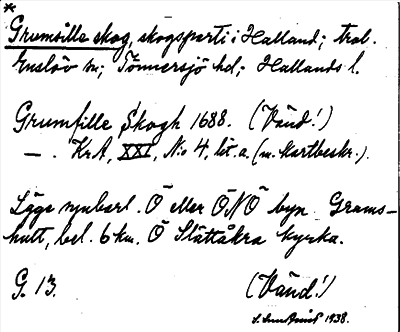 *
Grumsilla skog, skogsparti i Halland; trol.
Enslöv sn; Tönnersjö hd; Hallands l.
Grumsille Skogh 1688. (Vänd!)
— . KrA, XXI, N:o 4, lit. a. (m. Kartbeskr.).
Läge uppenbarl. Ö eller ÖNÖ byn Grams-
hult, bel. 6 km. Ö Slättåkra kyrka.
G. 13. (Vänd!)
1938.